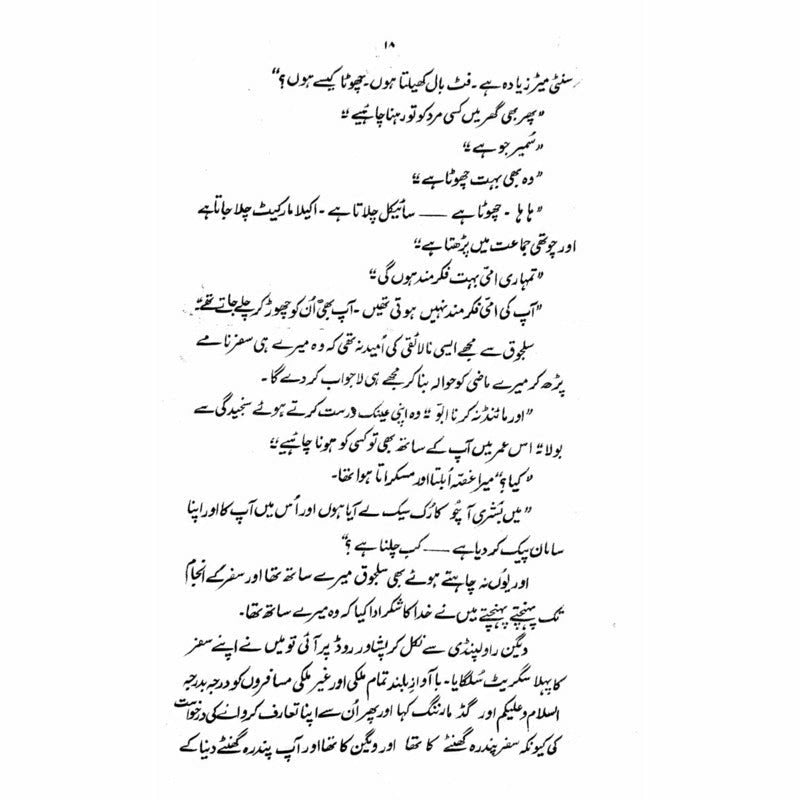 ۱۸
سنٹی میٹر زیادہ ہے۔ فٹ بال کھیلتا ہوں۔ چھوٹا کیسے ہوں؟“
”پھر بھی گھر میں کسی مرد کو تو رہنا چاہئیے“
”سُمیر جو ہے“
”وہ بھی بہت چھوٹا ہے“
”ہا ہا۔ چھوٹا ہے —— سائیکل چلاتا ہے۔ اکیلا مارکیٹ چلا جاتا ہے
اور چوتھی جماعت میں پڑھتا ہے“
”تمہاری امّی بہت فکر مند ہوں گی“
”آپ کی امّی فکر مند نہیں ہوتی تھیں۔ آپ بھی اُن کو چھوڑ کر چلے جاتے تھے“
سلجوق سے مجھے ایسی نالائقی کی اُمید نہ تھی کہ وہ میرے ہی سفرنامے
پڑھ کر میرے ماضی کو حوالہ بنا کر مجھے ہی لاجواب کر دے گا۔
”اور مائنڈ نہ کرنا ابّو“ وہ اپنی عینک درست کرتے ہوئے سنجیدگی سے
بولا ”اس عمر میں آپ کے ساتھ بھی تو کسی کو ہونا چاہئیے“
”کیا؟“ میرا غصّہ اُبلتا اور مسکراتا ہوا تھا۔
”میں بُشریٰ آپو کا رُک سیک لے آیا ہوں اور اُس میں آپ کا اور اپنا
سامان پیک کر دیا ہے —— کب چلنا ہے؟“
اور یوں نہ چاہتے ہوئے بھی سلجوق میرے ساتھ تھا اور سفر کے انجام
تک پہنچتے پہنچتے میں نے خدا کا شکر ادا کیا کہ وہ میرے ساتھ تھا۔
ویگن راولپنڈی سے نکل کر پشاور روڈ پر آئی تو میں نے اپنے سفر
کا پہلا سگریٹ سُلگایا۔ باآوازِ بلند تمام ملکی اور غیر ملکی مسافروں کو درجہ بدرجہ
السلام وعلیکم اور گڈ مارننگ کہا اور پھر اُن سے اپنا تعارف کروانے کی درخواست
کی کیونکہ سفر پندرہ گھنٹے کا تھا اور ویگن کا تھا اور آپ پندرہ گھنٹے دنیا کے